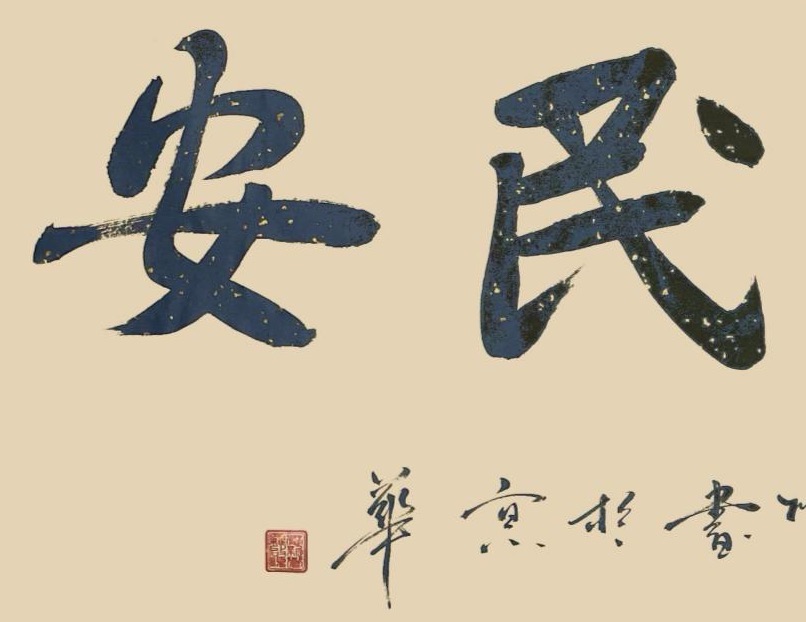 民安
書於京華